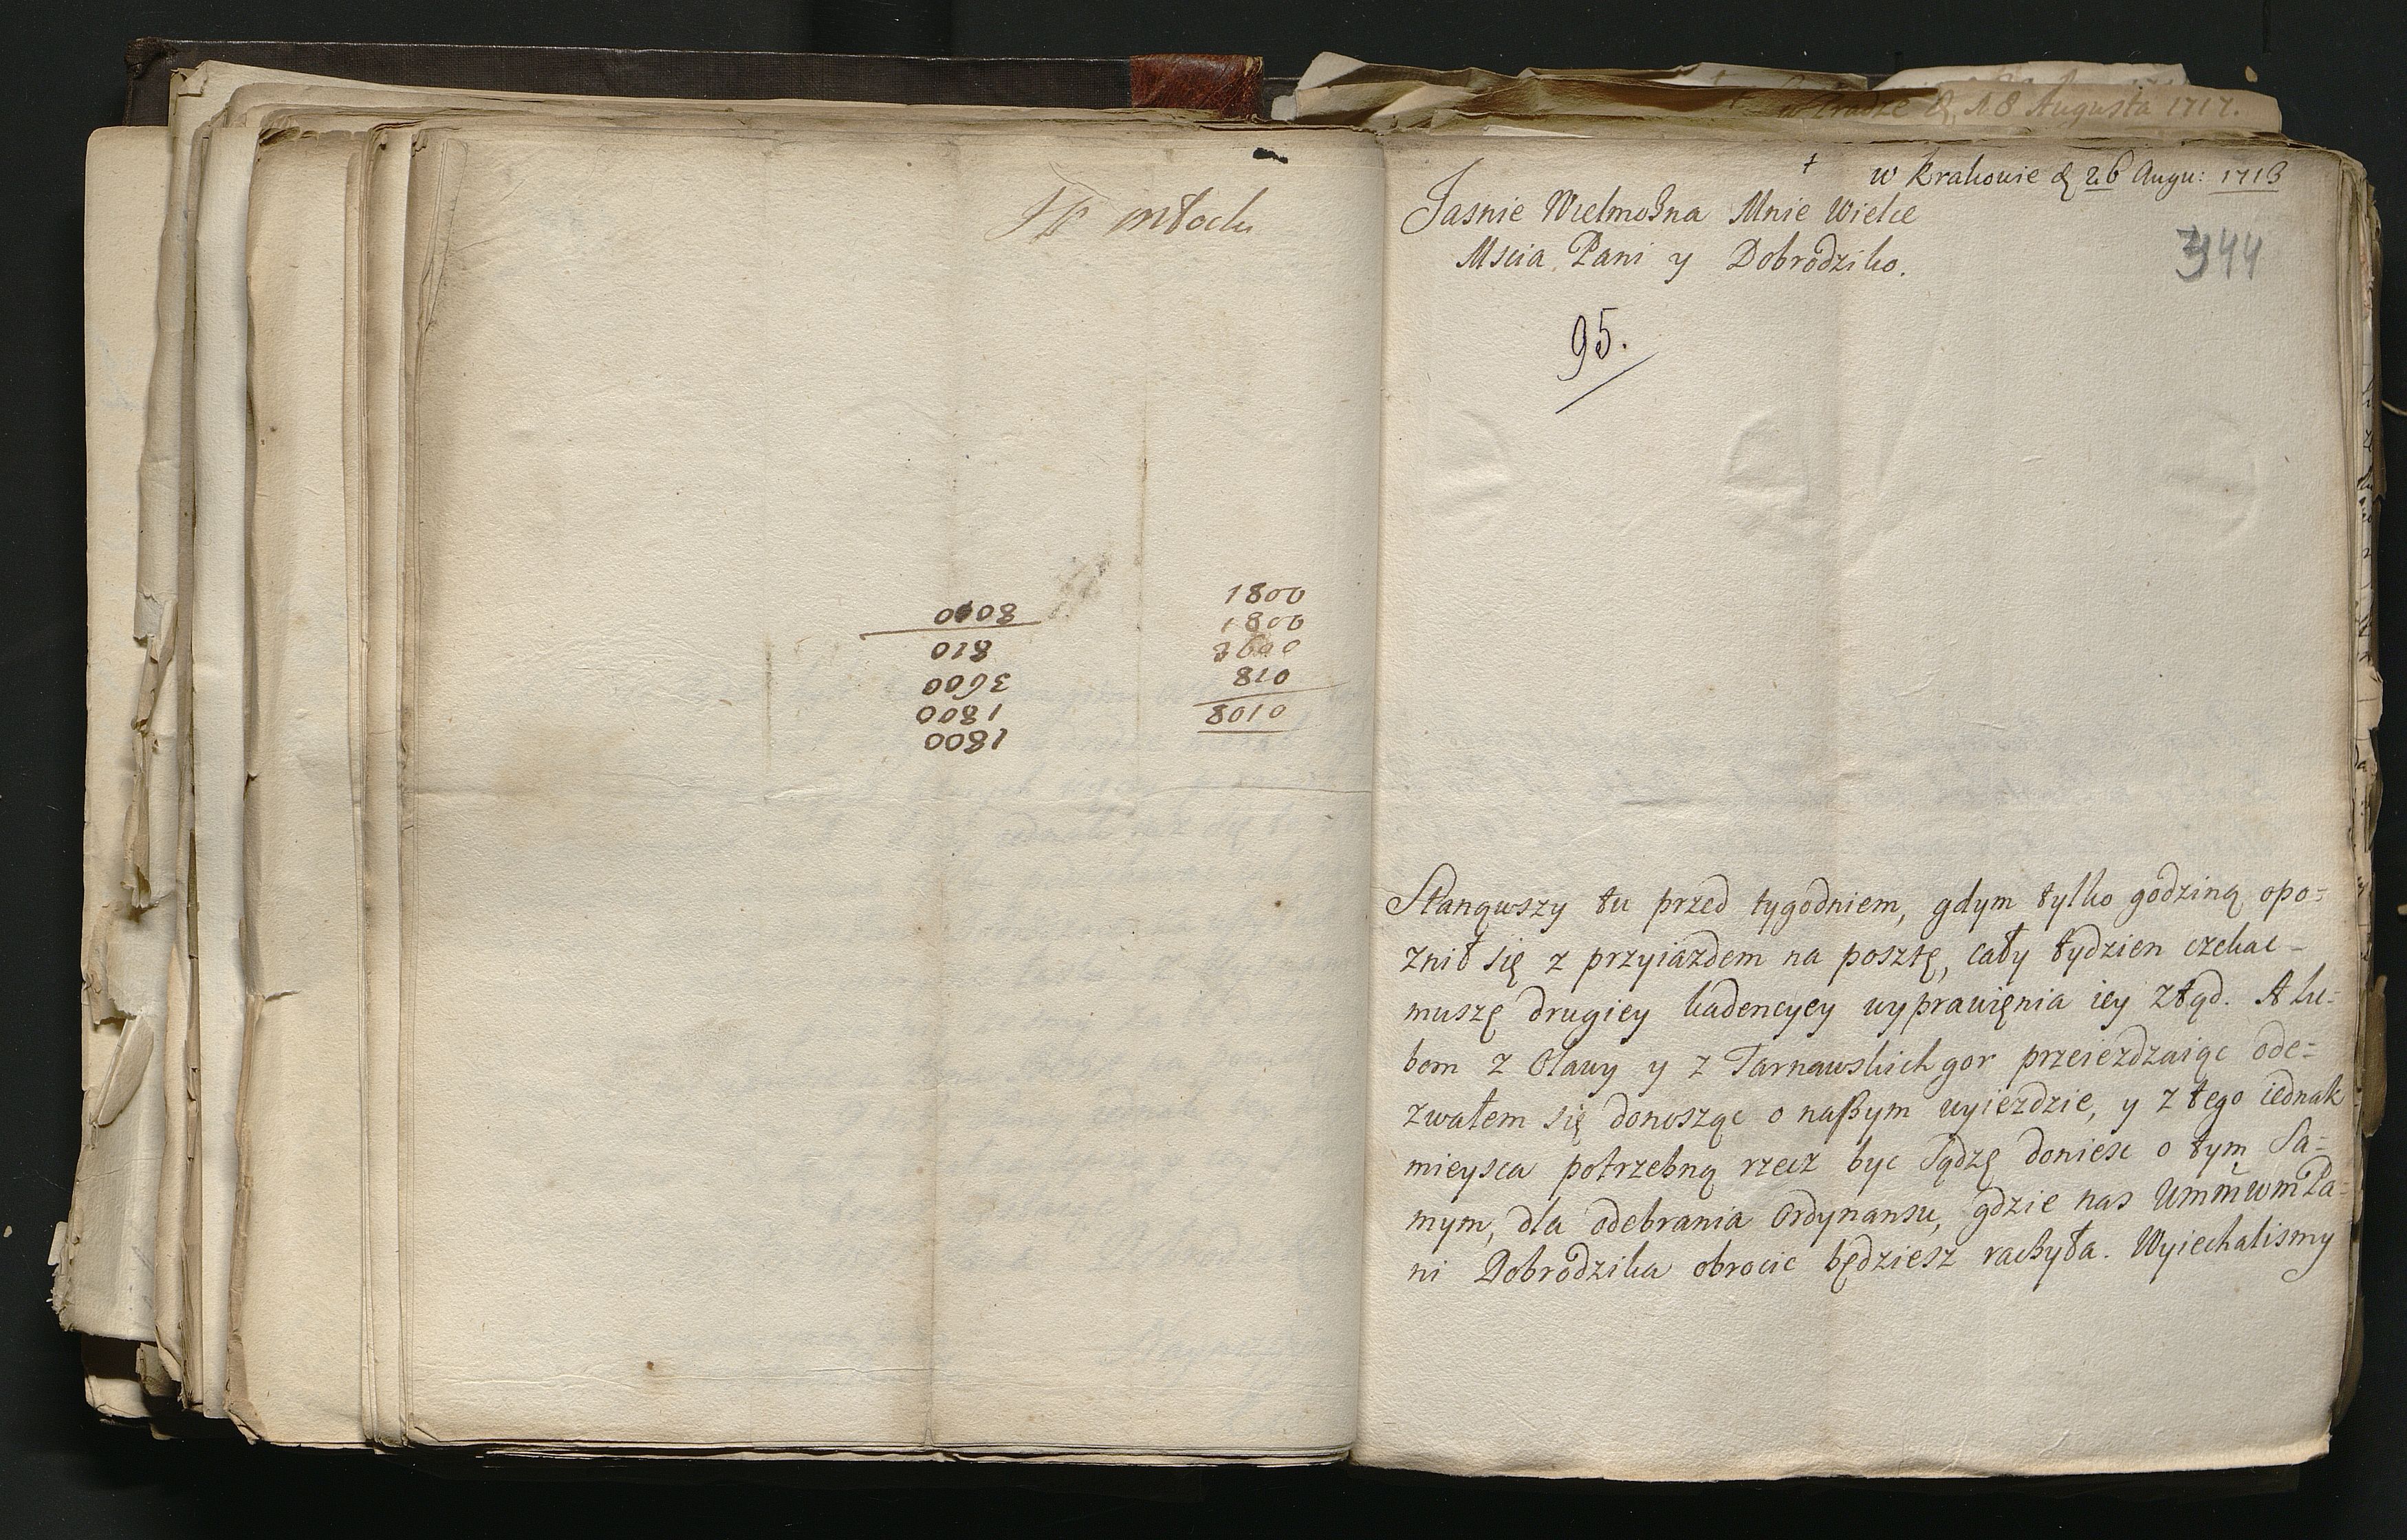 młocki
1800
1800
3600
810
8010
1800
1800
3600
810
8010
w Tradze d. 18 Augusta 1717.
†
w Krakowie d 26 Augu: 1713
Jasnie Wielmożna Mnie Wielce
Mscia Pani y Dobrodziko.
344
95.
Stanąwszy tu przed tygodniem, gdym tylko godziną opo=
znił się z przyiazdem na posztę, cały tydzien czekac
muszę drugiey kadencyey wyprawięnia iey ztąd. A lu=
bom z Olawy y z Tarnawskich gor przeiezdzaiąc ode=
zwałem się donosząc o naszym wyiezdzie, y z tego iednak
mieysca potrzebną rzecz byc sądzę doniesc o tym Sa=
mym, dla odebrania Ordynansu, gdzie nas WmmwmPa=
ni Dobrodzika obrocic będziesz raczyła. Wyiechalismy